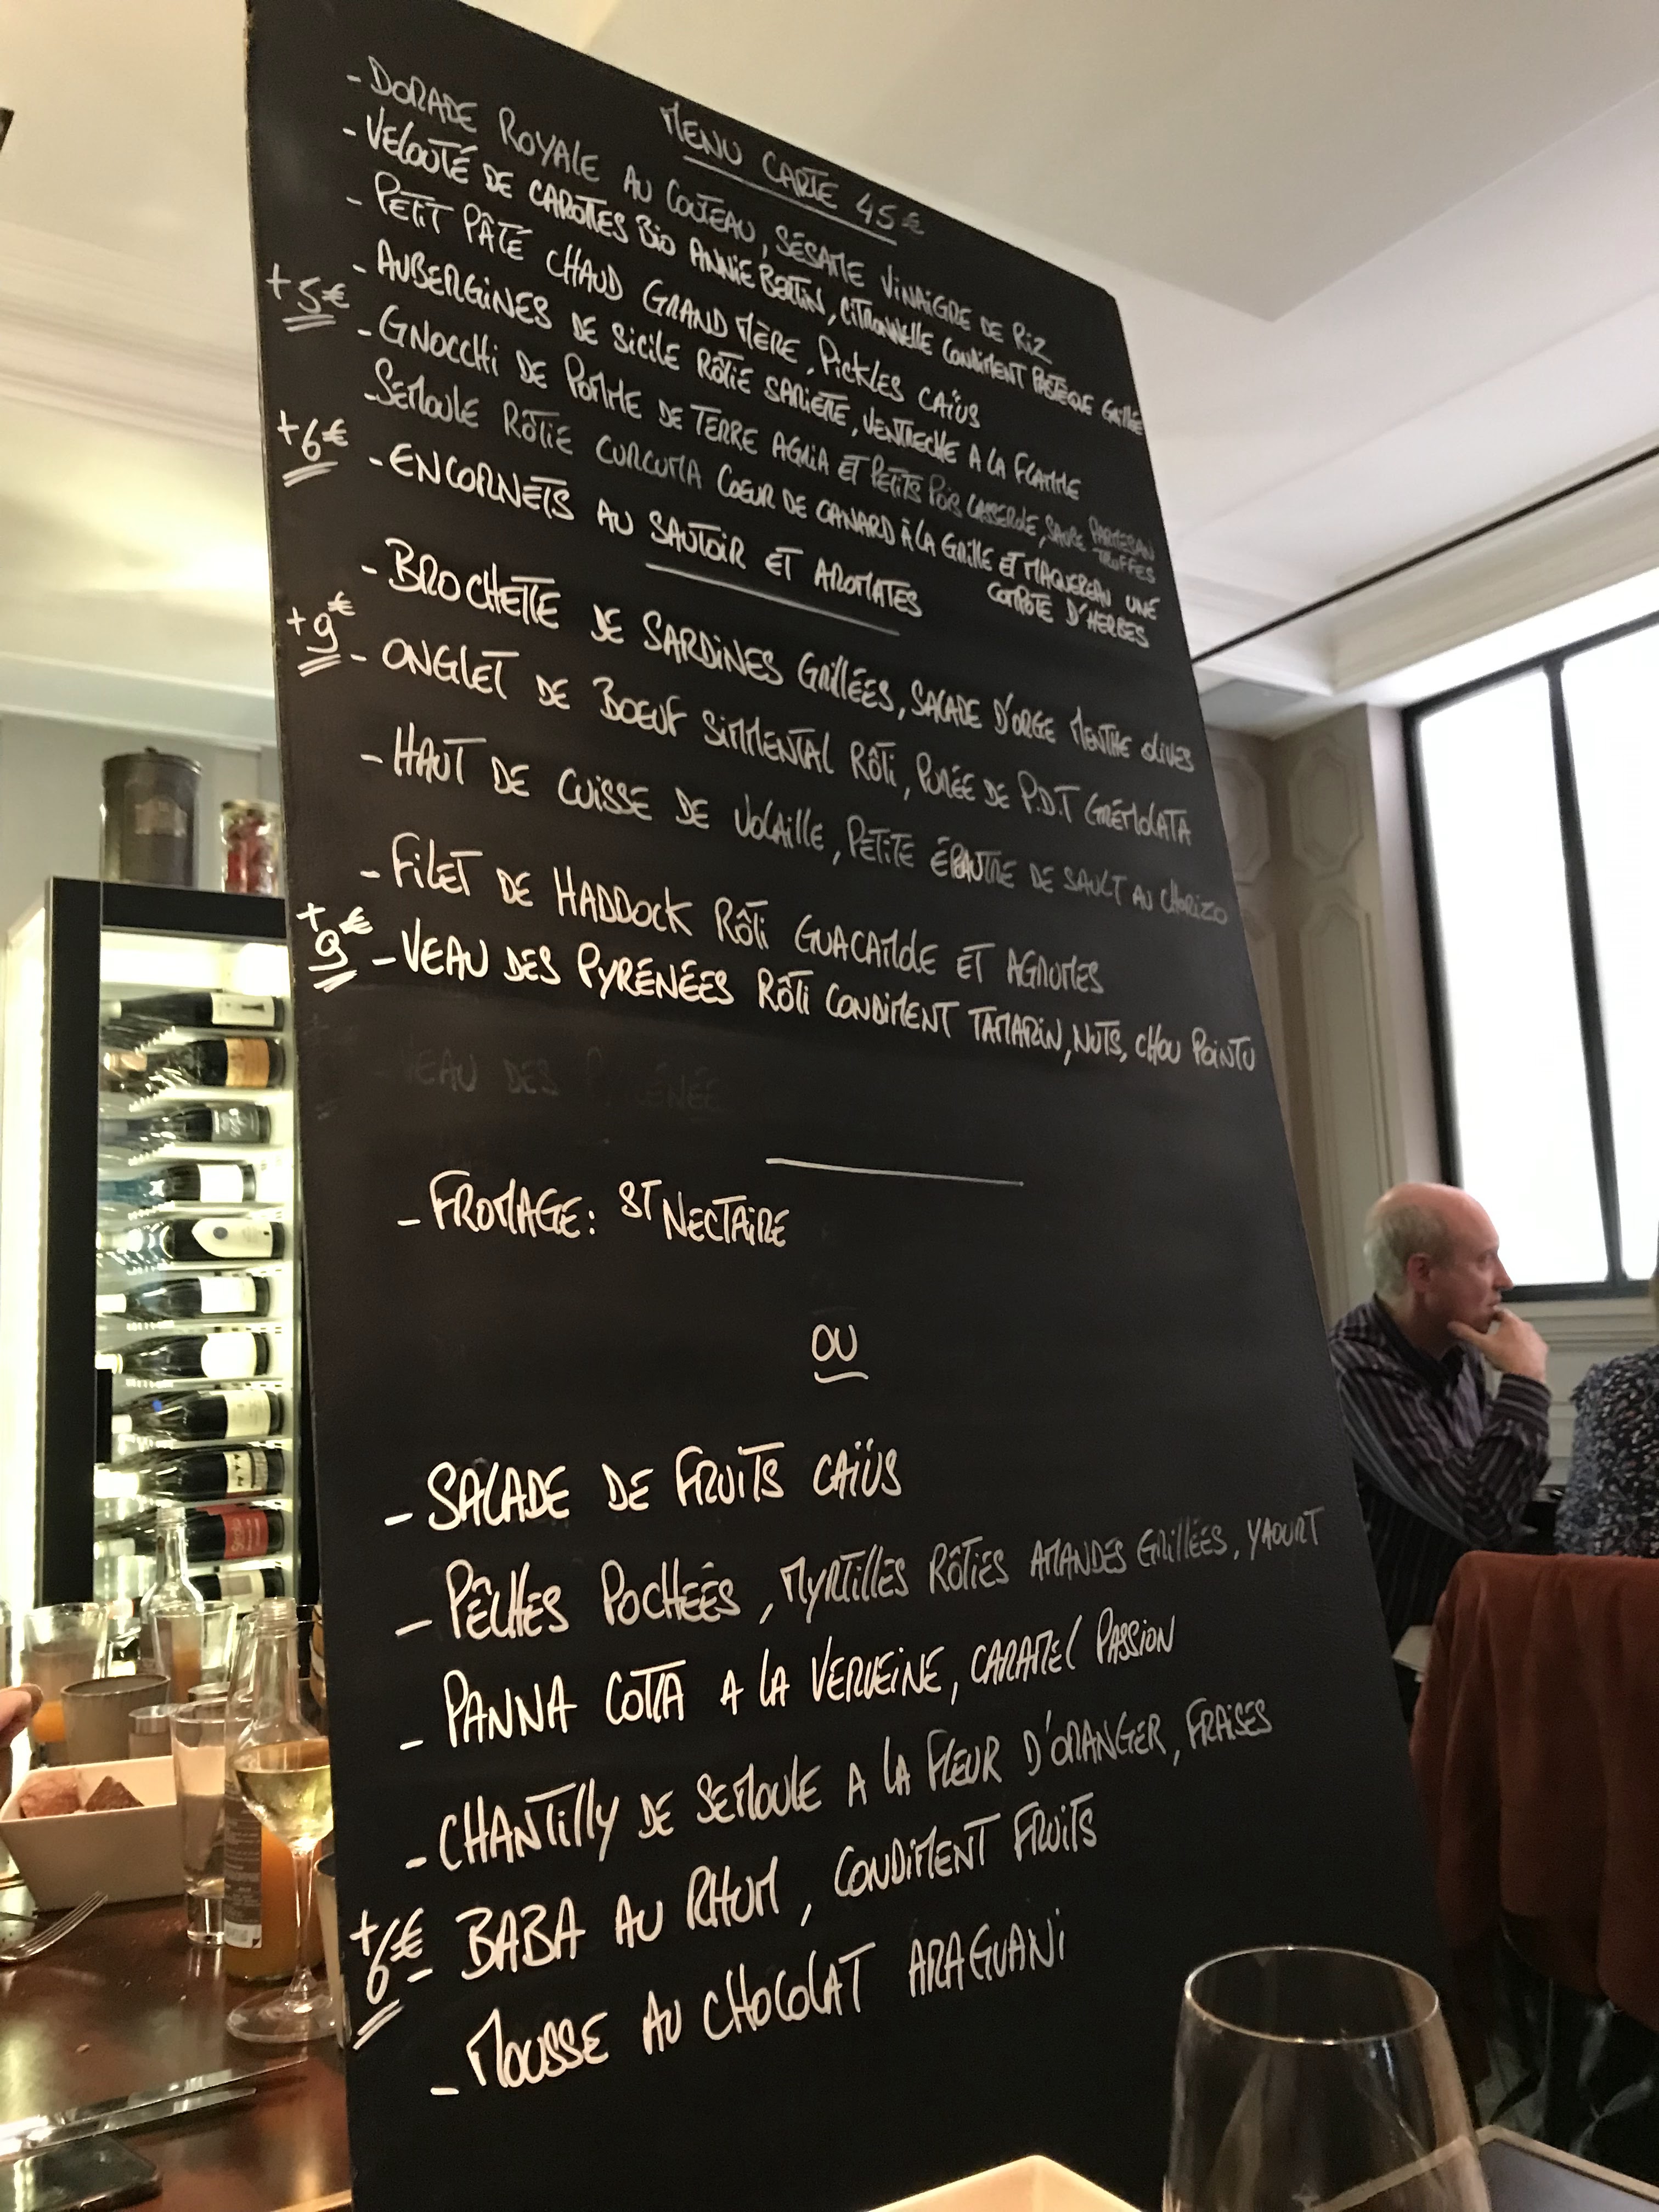 MENU CARTE 45€
- DORADE ROYALE AU COUTEAU, SÉSAME VINAIGRE DE RIZ
- VELOUTÉ DE CAROTTES BIO ANNIE BERTIN, CITRONNELLE CONDIMENT PASTÈQUE GRILLÉE
- PETIT PÂTÉ CHAUD GRAND MÈRE, PICKLES CAÏUS
- AUBERGINES DE SICILE RÔTIE SARIETTE, VENTRECHE A LA FLAMME
+5€ - GNOCCHI DE POMME DE TERRE AGRIA ET PETITS POIS CASSEROLE, SAUCE PARMESAN
TRUFFES
- SEMOULE RÔTIE CURCUMA COEUR DE CANARD À LA GRILLE ET MAQUEREAU UNE
COMPOTE D'HERBES
+6€ - ENCORNETS AU SAUTOIR ET AROMATES
- BROCHETTE DE SARDINES GRILLÉES, SALADE D'ORGE MENTHE OLIVES
+9€ - ONGLET DE BOEUF SIMMENTAL RÔTI, PURÉE DE P.D.T GRÉMOLATA
- HAUT DE CUISSE DE VOLAILLE, PETITE ÉPAUTRE DE SAULT AU CHORIZO
- FILET DE HADDOCK RÔTI GUACAMOLE ET AGRUMES
+9€ - VEAU DES PYRÉNÉES RÔTI CONDIMENT TAMARIN, NUTS, CHOU POINTU
VEAU DES PYRÉNÉE
- FROMAGE: ST NECTAIRE
OU
- SALADE DE FRUITS CAÏUS
- PÊCHES POCHEÉS, MYRTILLES RÔTIES AMANDES GRILLÉES, YAOURT
- PANNA COTTA A LA VERVEINE, CARAMEL PASSION
- CHANTILLY DE SEMOULE A LA FLEUR D'ORANGER, FRAISES
+6€ - BABA AU RHUM, CONDIMENT FRUITS
- MOUSSE AU CHOCOLAT ARAGUANI